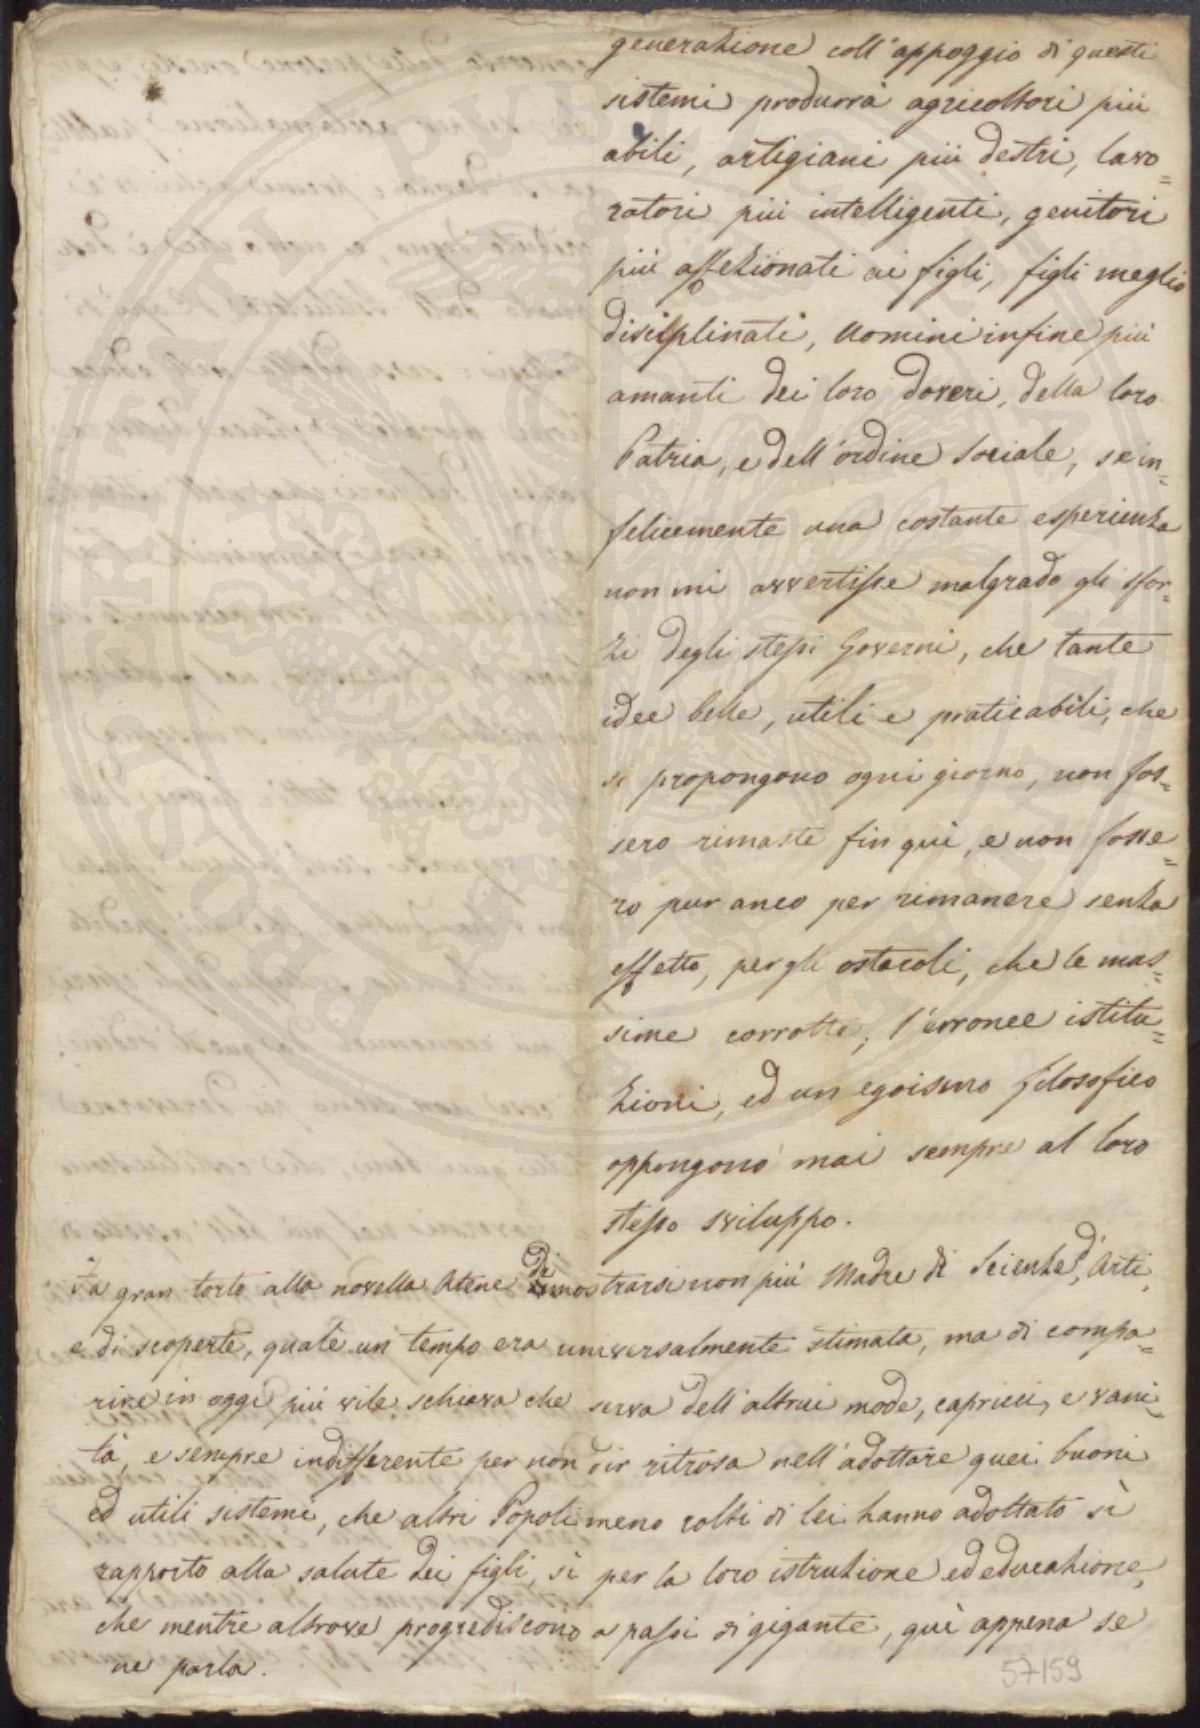 generazione coll'appoggio di questi
sistemi produrrà agricoltori più
abili, artigiani più destri, lavo=
ratori più intelligenti, genitori
più affezionati ai figli, figli meglio
disciplinati, Uomini infine più
amanti dei loro doveri, della loro
Patria, e dell'ordine sociale, se in=
felicemente una costante esperienza
non mi avvertisse malgrado gli sfor=
zi degli stessi Governi, che tante
idee belle, utili e praticabili, che
si propongono ogni giorno, non fos=
sero rimaste fin quì, e non fosse=
ro pur anco per rimanere senza
effetto, per gli ostacoli, che le mas=
sime corrotte, l'erronee istitu=
zioni, ed un egoismo filosofico
oppongono mai sempre al loro
stesso sviluppo.
Fa gran torto alla novella Atene dimostrarsi non più Madre di Scienze, d'Arti,
e di scoperte, quale un tempo era universalmente stimata, ma di compa=
rire in oggi più vile schiava che serva dell'altrui mode, capricci, e vani=
tà, e sempre indifferente per non dir ritrosa nell'adottare quei buoni
ed utili sistemi, che altri Popoli meno colti di lei hanno adottato sì
rapporto alla salute dei figli, sì per la loro istruzione ed educazione,
che mentre altrove progrediscono a passi di gigante, quì appena se
ne parla.
57159
PROSPERITATI PUBLICAE